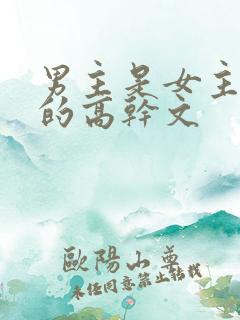 男主是女主
的高幹文
歐陽山尊
未经同意禁止转载